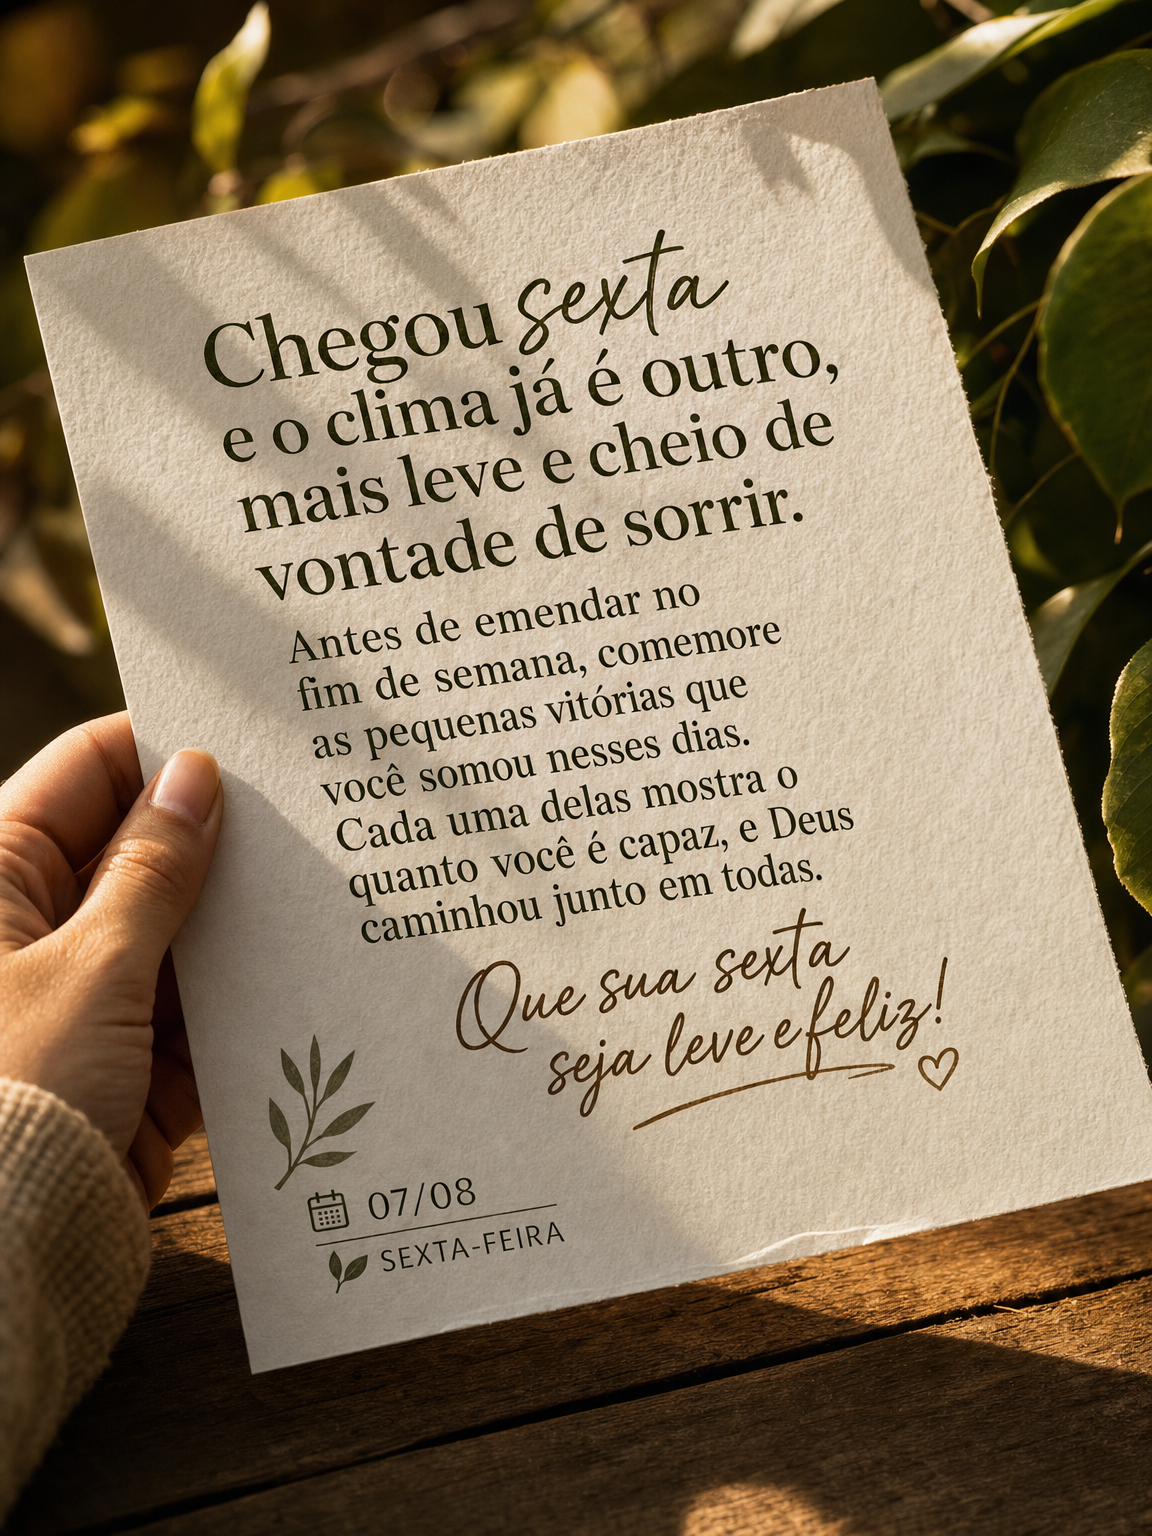 Chegou sexta
e o clima já é outro,
mais leve e cheio de
vontade de sorrir.
Antes de emendar no
fim de semana, comemore
as pequenas vitórias que
você somou nesses dias.
Cada uma delas mostra o
quanto você é capaz, e Deus
caminhou junto em todas.
Que sua sexta
seja leve e feliz!
07/08
SEXTA-FEIRA